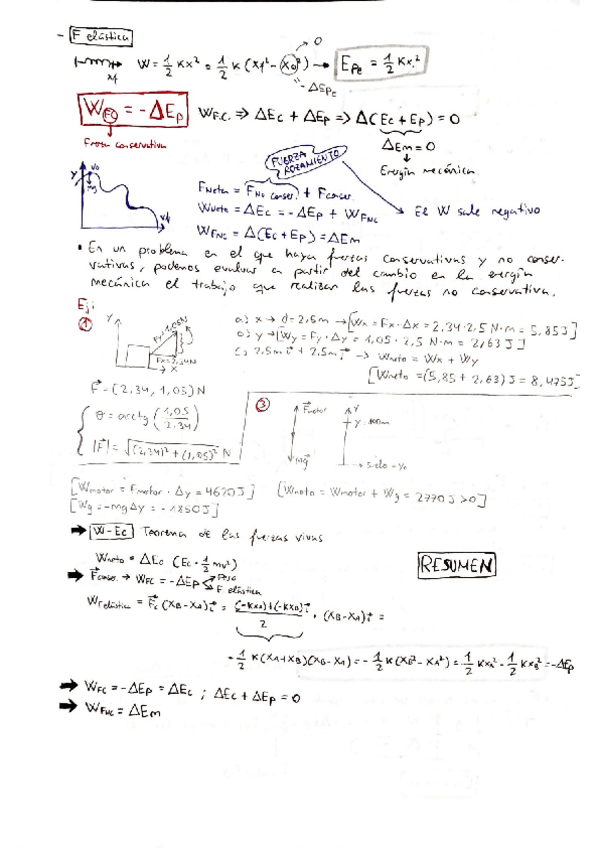 - F elástica
W = 1/2 Kx² = 1/2 K (x₁² - x₀²) → Epe = 1/2 Kx²
0
- ΔEpe
W_FC = - ΔEp
W F.C. ⇒ ΔEc + ΔEp ⇒ Δ(Ec + Ep) = 0
Fuerza conservativa
ΔEm = 0
Energía mecánica
FUERZA ROZAMIENTO
y
v₀
mg
vf
Fneta = F No conser. + Fconser.
Wneto = ΔEc = - ΔEp + W FNC
W FNC = Δ(Ec + Ep) = ΔEm
El W sale negativo
• En un problema en el que haya fuerzas conservativas y no conser-
vativas, podemos evaluar a partir del cambio en la energía
mecánica el trabajo que realizan las fuerzas no conservativa.
Ej:
①
Y
Fy=1,05N
Fx=2,34N
X
a) x → d = 2,5m → [Wx = Fx · Δx = 2,34 · 2,5 N·m = 5,85 J]
b) y → [Wy = Fy · Δy = 1,05 · 2,5 N·m = 2,63 J]
c) 2,5m i + 2,5m j → Wneto = Wx + Wy
[Wneto = (5,85 + 2,63) J = 8,475J]
F = (2,34, 1,05) N
θ = arctg (1,05/2,34)
|F| = √(2,34)² + (1,05)² N
③
Fmotor
Mg
Y
suelo - y₀
[Wmotor = Fmotor · Δy = 4620 J]
[Wneto = Wmotor + Wg = 2770 J > 0]
[Wg = - mgΔy = - 1850 J]
→ W-Ec Teorema de las fuerzas vivas
Wneto = ΔEc (Ec = 1/2 mv²)
RESUMEN
→ Fconser. → W FC = - ΔEp
Peso
F elástica
W F elástica = Fc (xB - xA) i = (-KxA) + (-KxB) i / 2 · (xB - xA) i =
- 1/2 K (xA + xB)(xB - xA) = - 1/2 K (xB² - xA²) = 1/2 KxA² - 1/2 KxB² = - ΔEp
→ W FC = - ΔEp = ΔEc ; ΔEc + ΔEp = 0
→ W FNC = ΔEm